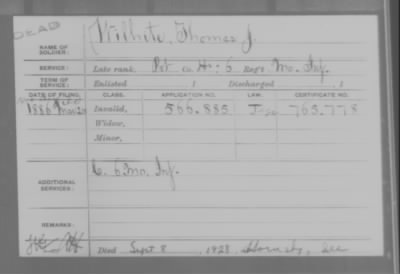 DEAD
NAME OF SOLDIER: Wilhite, Thomas J.
SERVICE: Late rank, Pvt Co. H. 6 Reg't Mo. Inf.
TERM OF SERVICE: Enlisted , 1 Discharged , 1
DATE OF FILING. CLASS. APPLICATION NO. LAW. CERTIFICATE NO.
1886 Invalid, 566.885 763.778
Widow,
Minor,
ADDITIONAL SERVICES: C. 6 Mo. Inf.
REMARKS:
Died Sept 8, 1928